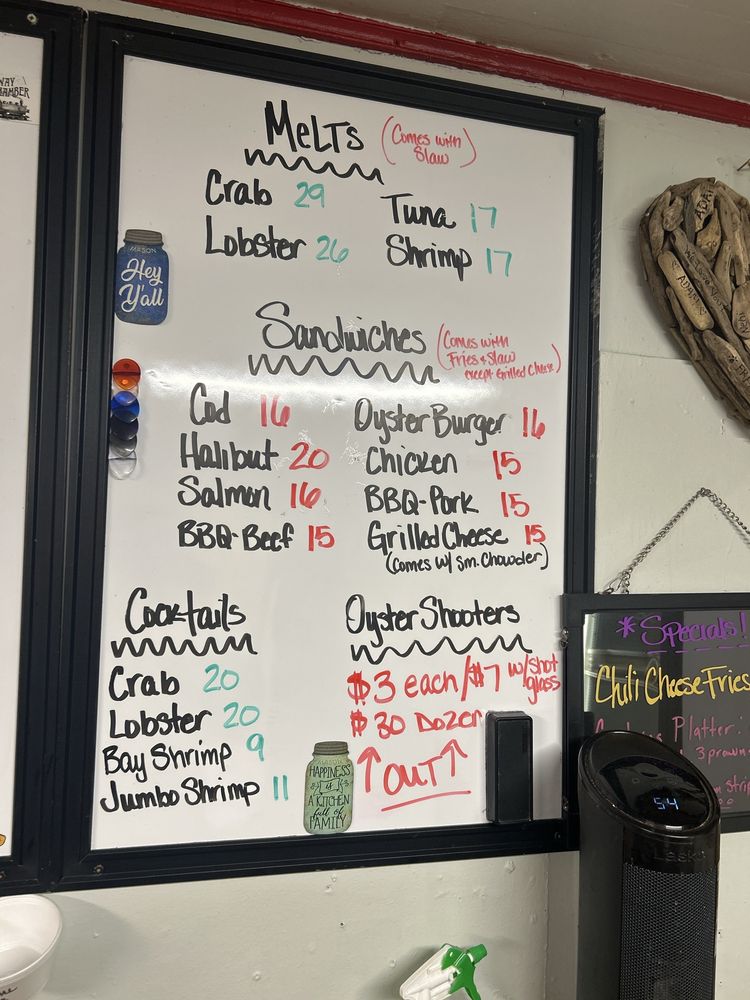 WAY
AMBER
Melts (Comes with
Slaw)
Crab 29
Lobster 26
Tuna 17
Shrimp 17
MASON
Hey
Y'all
Sandwiches (Comes with
Fries & Slaw
except Grilled Cheese)
Cod 16
Halibut 20
Salmon 16
BBQ-Beef 15
Oyster Burger 16
Chicken 15
BBQ-Pork 15
Grilled Cheese 15
(Comes w/ Sm. Chowder)
Cocktails
Crab 20
Lobster 20
Bay Shrimp 9
Jumbo Shrimp 11
Oyster Shooters
$3 each/$7 w/shot
glass
$30 Dozen
↑OUT↑
MASON
HAPPINESS
is
A KITCHEN
full of
FAMILY
*Specials!
Chili Cheese Fries
Platter
3 prawn
strip
54
Lasko
ADAM